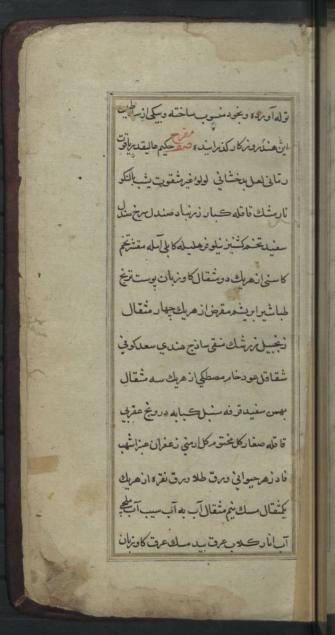 توله آورده و بخود منسوب ساخته و بیکی از سلاطین
این هند روز کار گذرانیده صفت مفرح حکیم عالیقدر یاقوت
رمانی لعل بدخشانی لولو غیر مثقوب یشب بالنکو
نارمشک قاقله کبار زرنباد صندل سرخ صندل
سفید تخم کشنیز نیلوفر هلیله کابلی آمله مقشر تخم
کاسنی از هریک دو مثقال کاوزبان پوست ترنج
طباشیر ابریشم مقرض از هریک چهار مثقال
زنجبیل زرشک منقی ساذج هندی سعد کوفی
شقاقل عود خام مصطکی از هریک سه مثقال
بهمن سفید قرفه سنبل کبابه درونج عقربی
قاقله صغار کل مختوم کل ارمنی زعفران عنبر اشهب
فادزهر حیوانی ورق طلا ورق نقره از هریک
یکمثقال مسک نیم مثقال آب به آب سیب
آب انار کلاب عرق بید مسک عرق کاوزبان